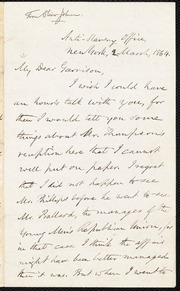 Anti-Slavery Office,
New York, 2 March, 1864.
My Dear Garrison,
I wish I could have
an hour's talk with you, for
then I would tell you some
things about Mr. Thompson's
reception here that I cannot
well put on paper. I regret
that I did not happen to see
Mr. Phillips before he went to see
Mr. Ballard, the manager of the
Young Men's Republican Union, for
in that case I think the affair
might have been better managed
than it was. But when I went to